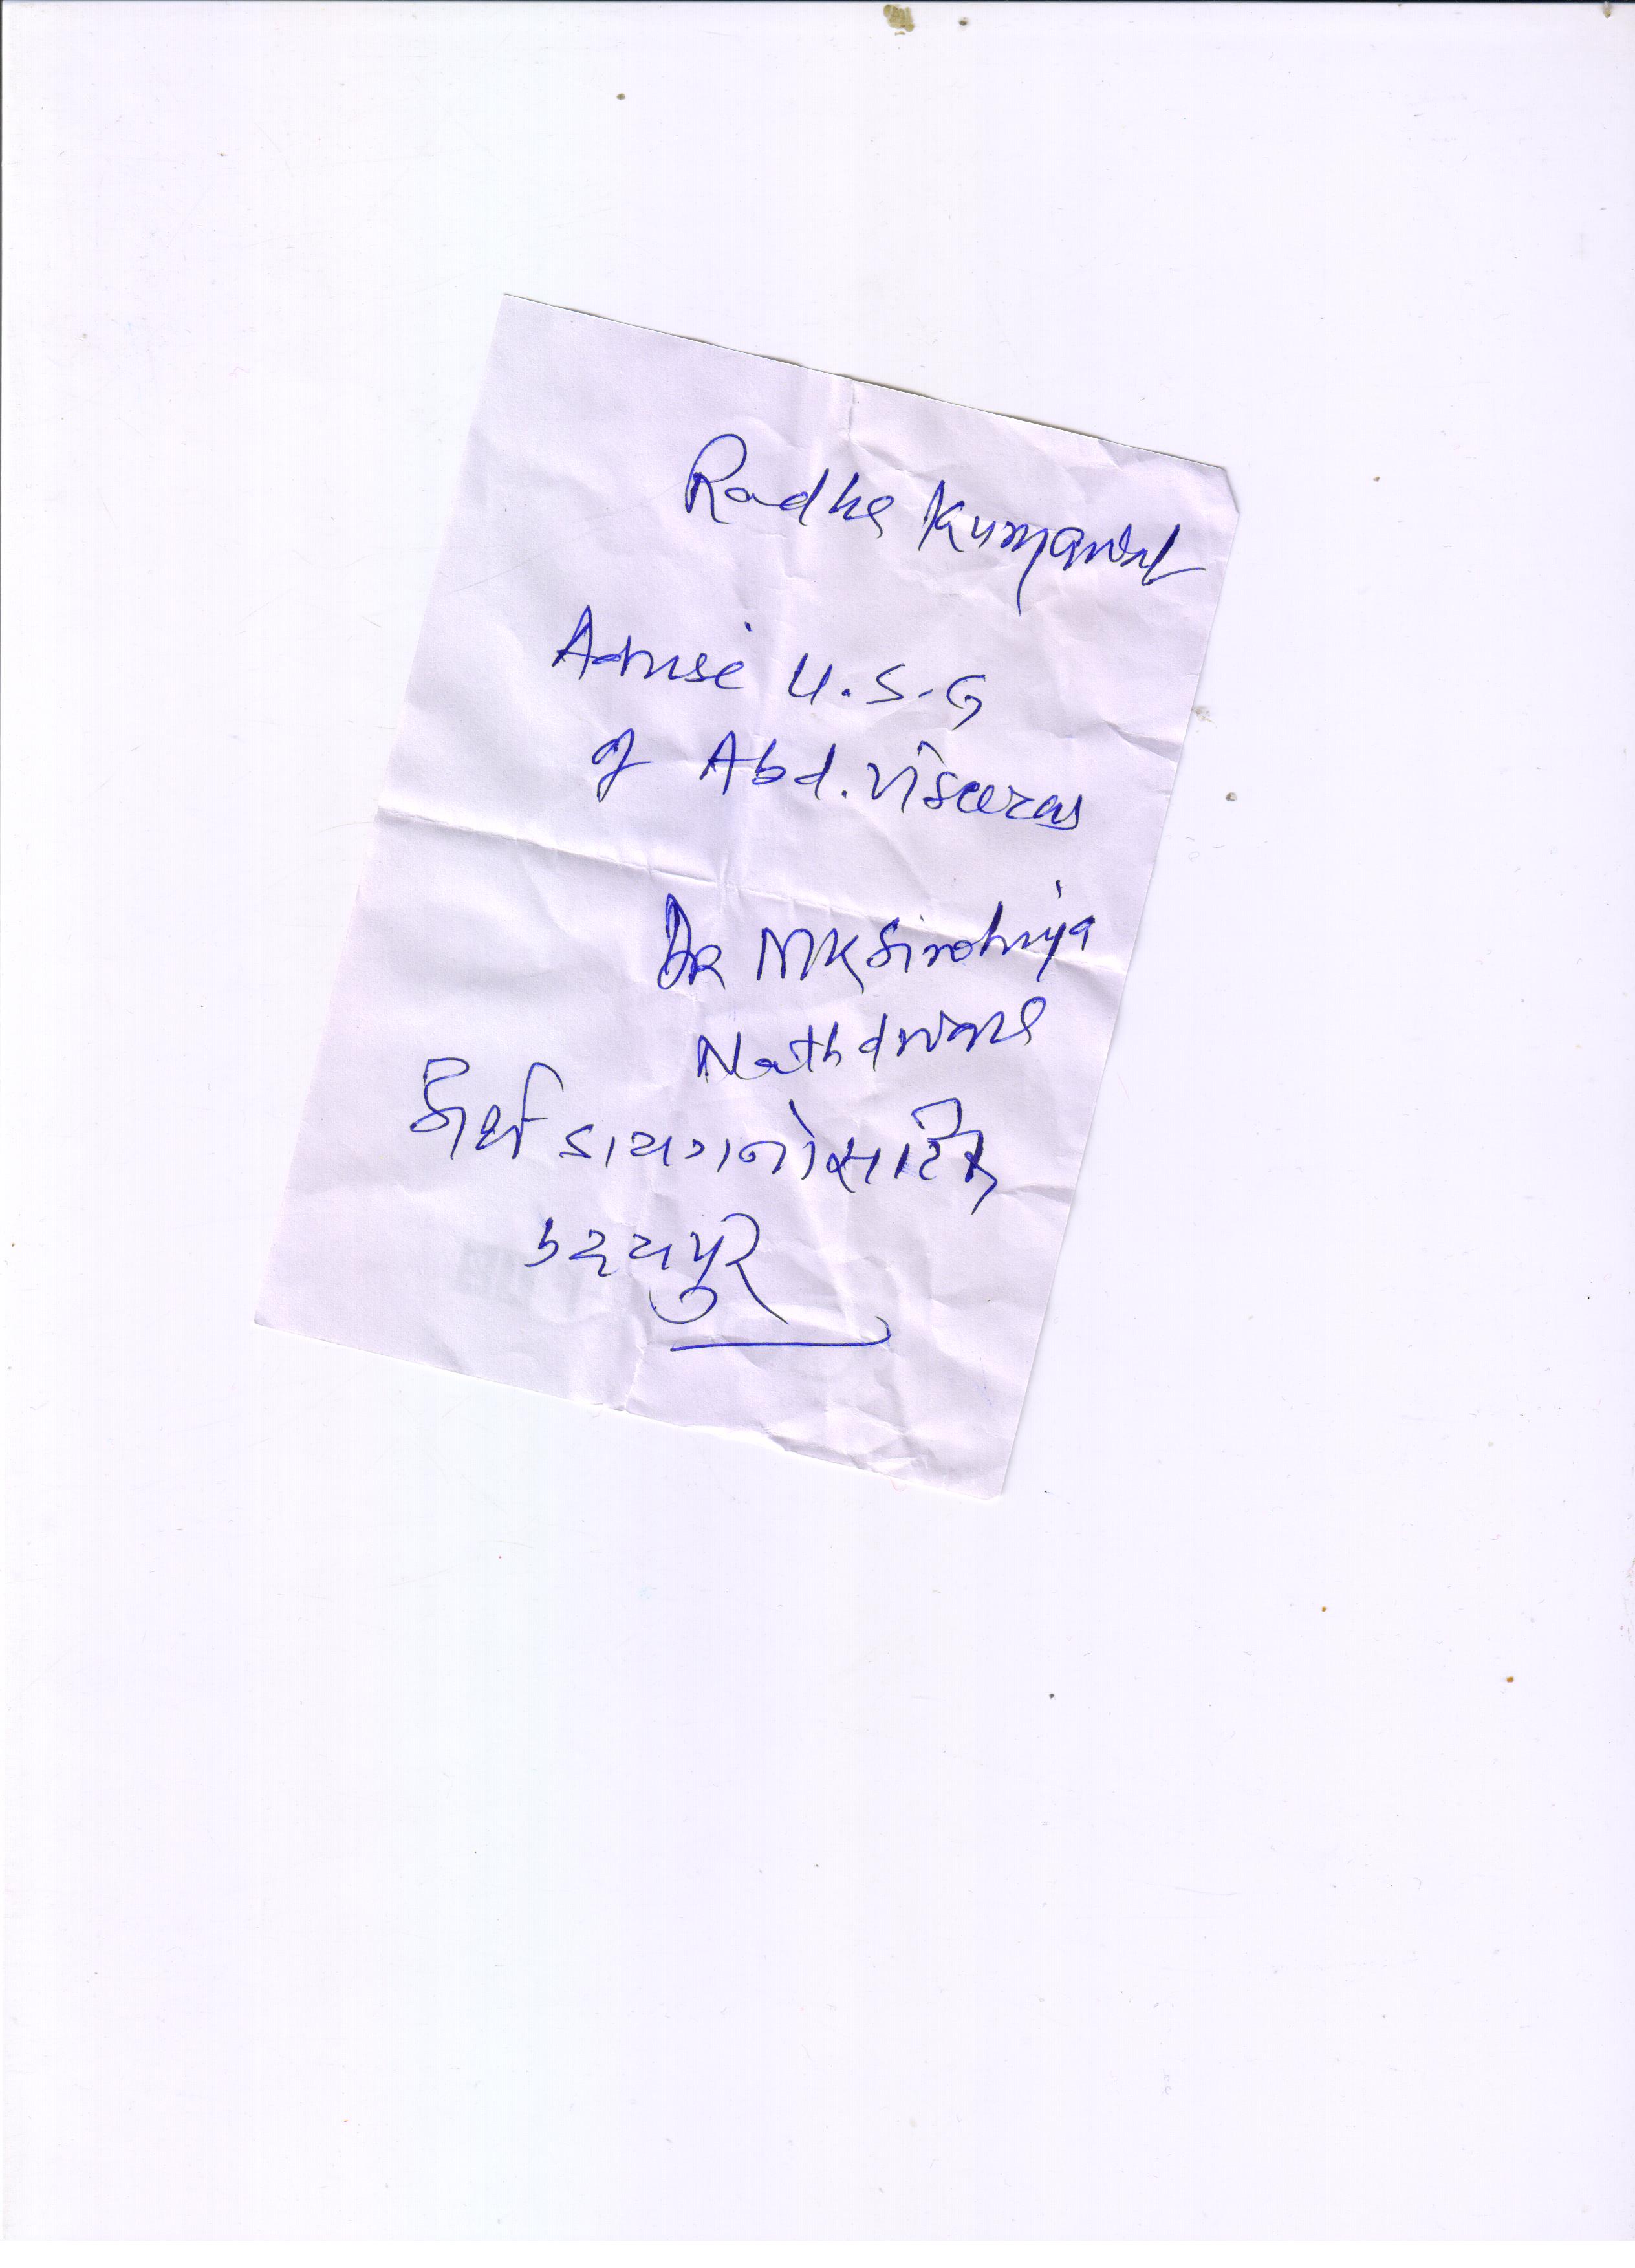 Radha Kumawat
Advise U.S.G
of Abd. Visceras
Dr MK Sirohiya
Nathdwara
अर्थ डायग्नोसटिक
उदयपुर